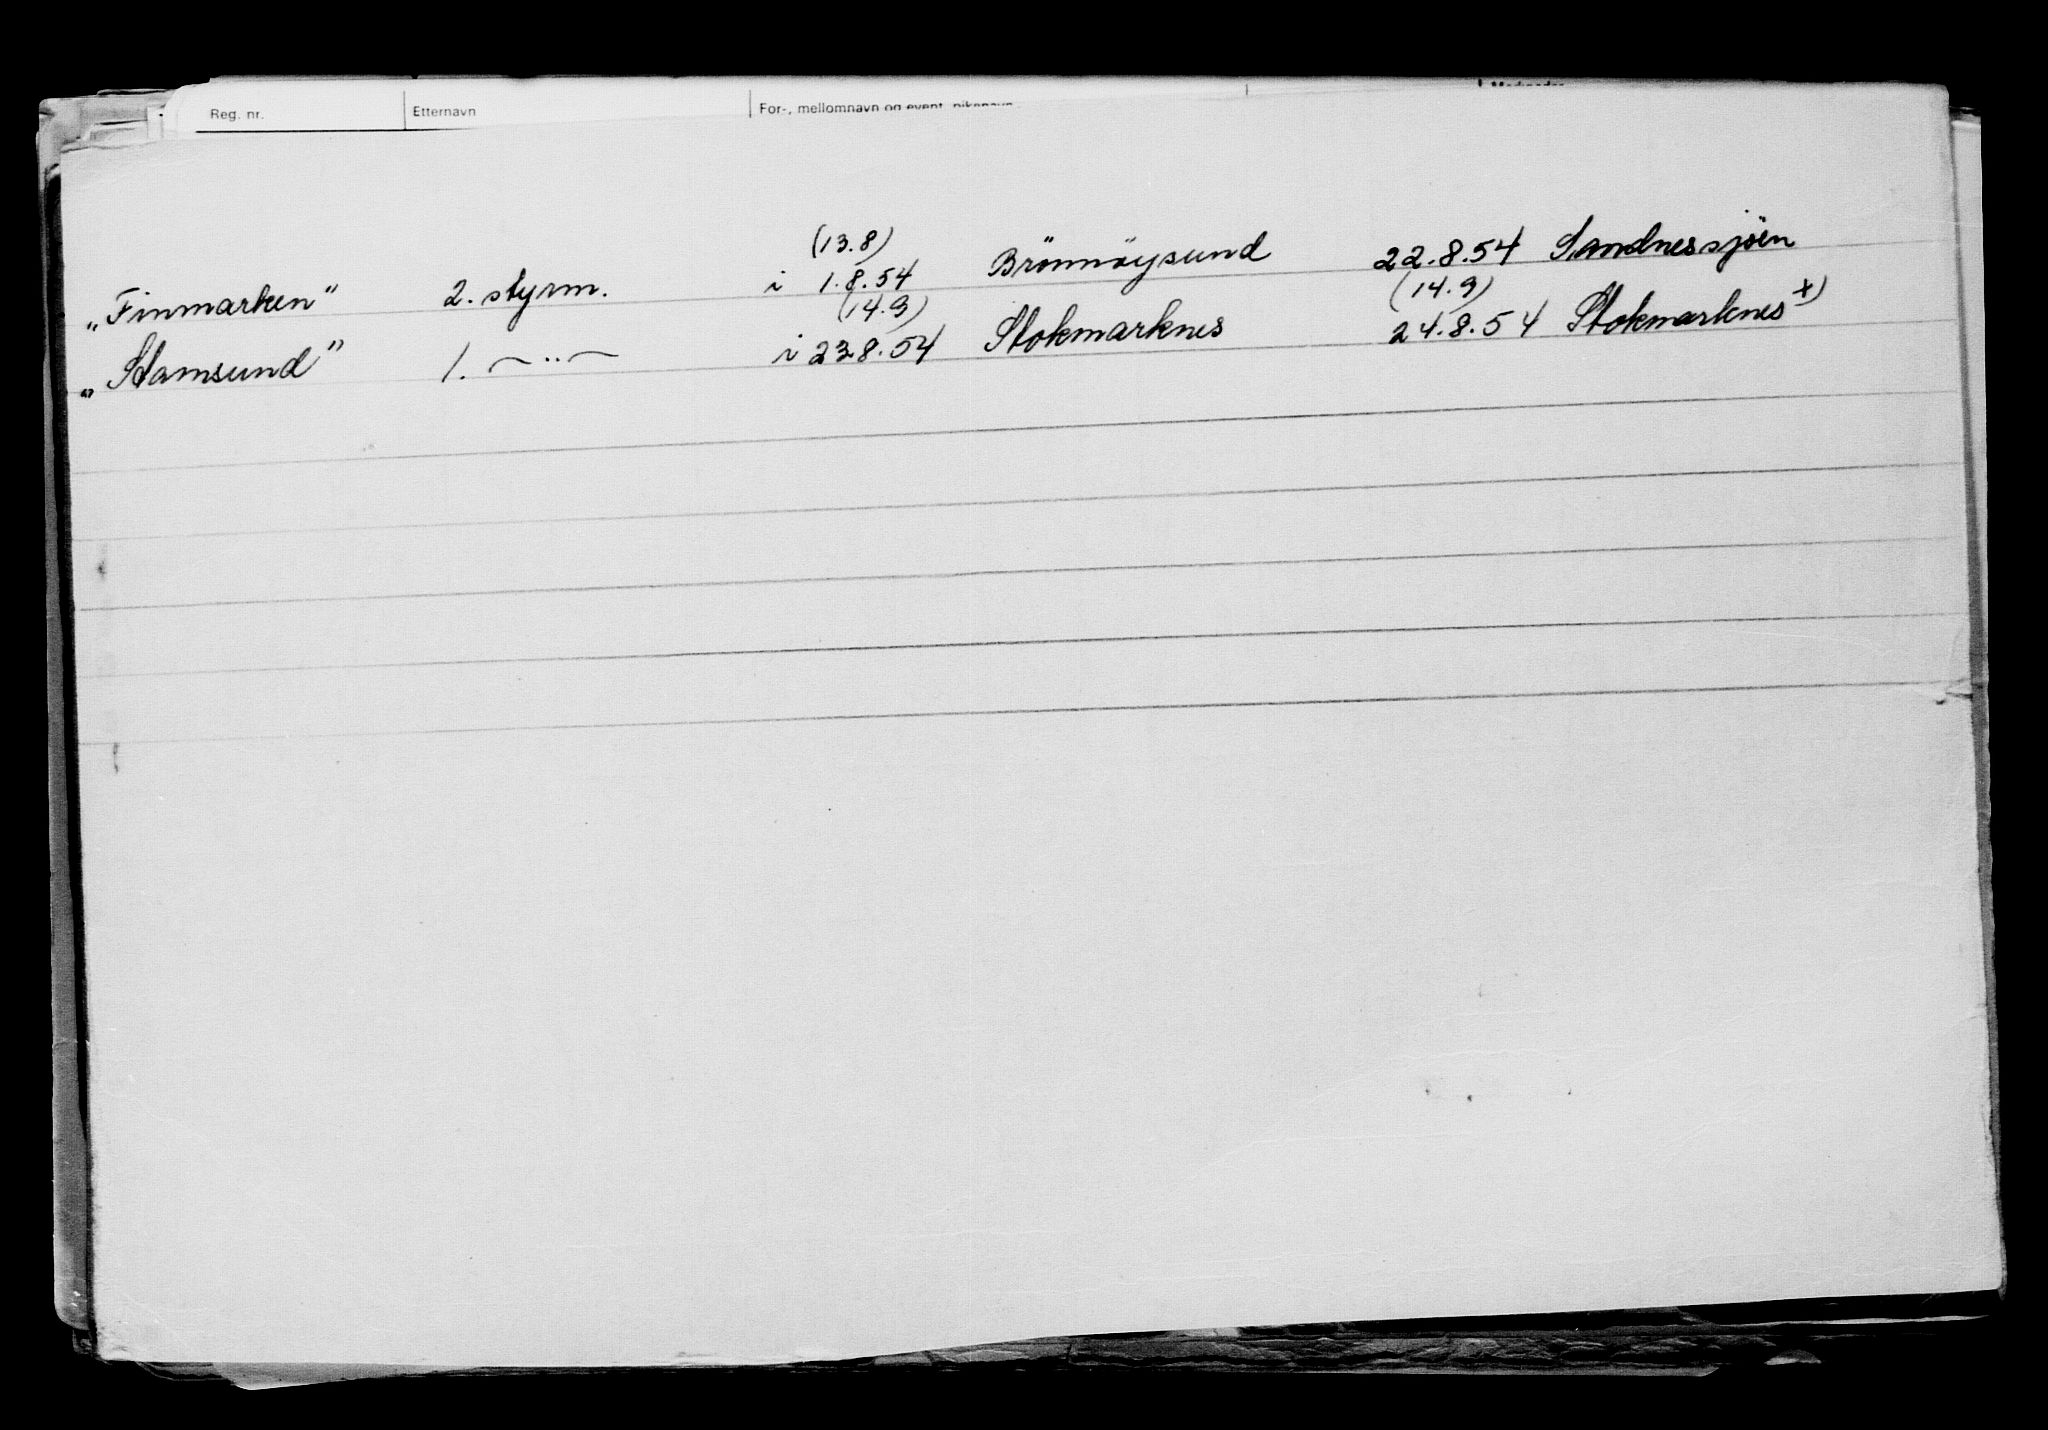 Reg. nr. Etternavn For-, mellomnavn og event. pikenavn
(13.8)
„Finmarken" 2. styrm. i 1.8.54 Brönnöysund 22.8.54 Sandnessjöen
(14.9) (14.9)
„Stamsund" 1. —..— i 23.8.54 Stokmarknes 24.8.54 Stokmarknes x)